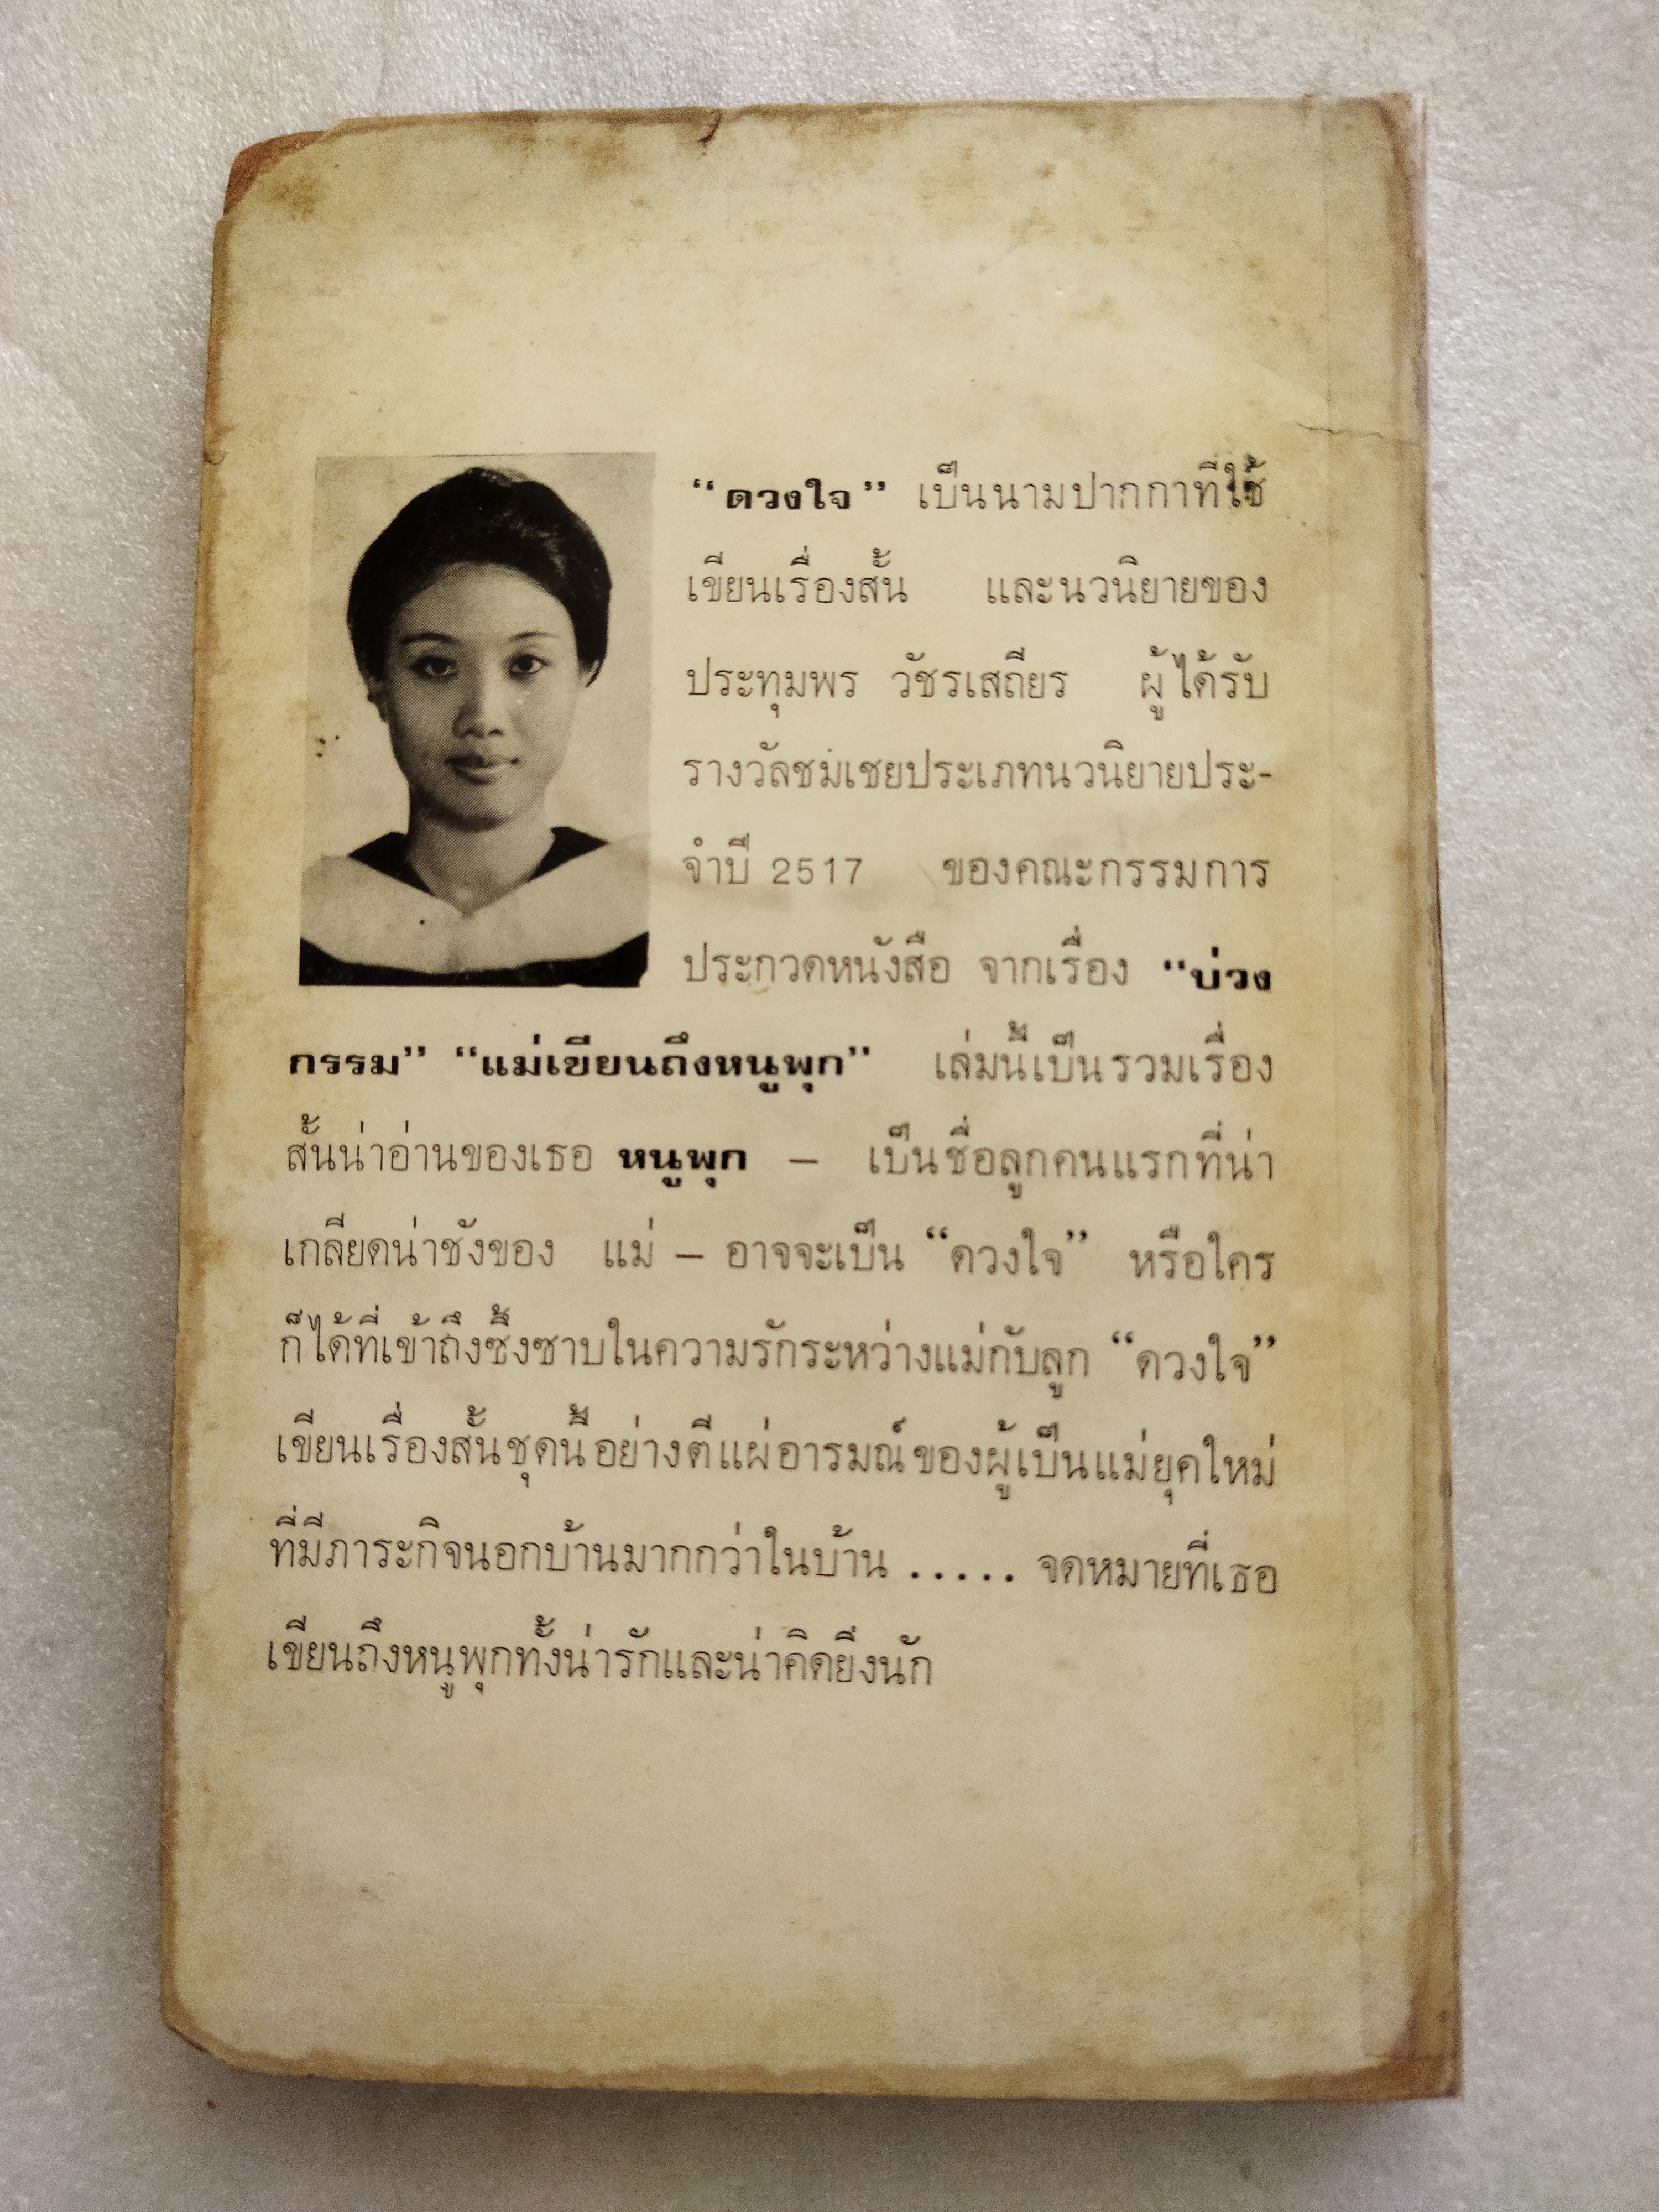 “ดวงใจ” เป็นนามปากกาที่ใช้
เขียนเรื่องสั้น และนวนิยายของ
ประทุมพร วัชรเสถียร ผู้ได้รับ
รางวัลชมเชยประเภทนวนิยายประ-
จำปี 2517 ของคณะกรรมการ
ประกวดหนังสือ จากเรื่อง “บ่วง
กรรม” “แม่เขียนถึงหนูพุก” เล่มนี้เป็นรวมเรื่อง
สั้นน่าอ่านของเธอ หนูพุก – เป็นชื่อลูกคนแรกที่น่า
เกลียดน่าชังของ แม่ – อาจจะเป็น “ดวงใจ” หรือใคร
ก็ได้ที่เข้าถึงซึ้งซาบในความรักระหว่างแม่กับลูก “ดวงใจ”
เขียนเรื่องสั้นชุดนี้อย่างตีแผ่อารมณ์ของผู้เป็นแม่ยุคใหม่
ที่มีภาระกิจนอกบ้านมากกว่าในบ้าน ..... จดหมายที่เธอ
เขียนถึงหนูพุกทั้งน่ารักและน่าคิดยิ่งนัก